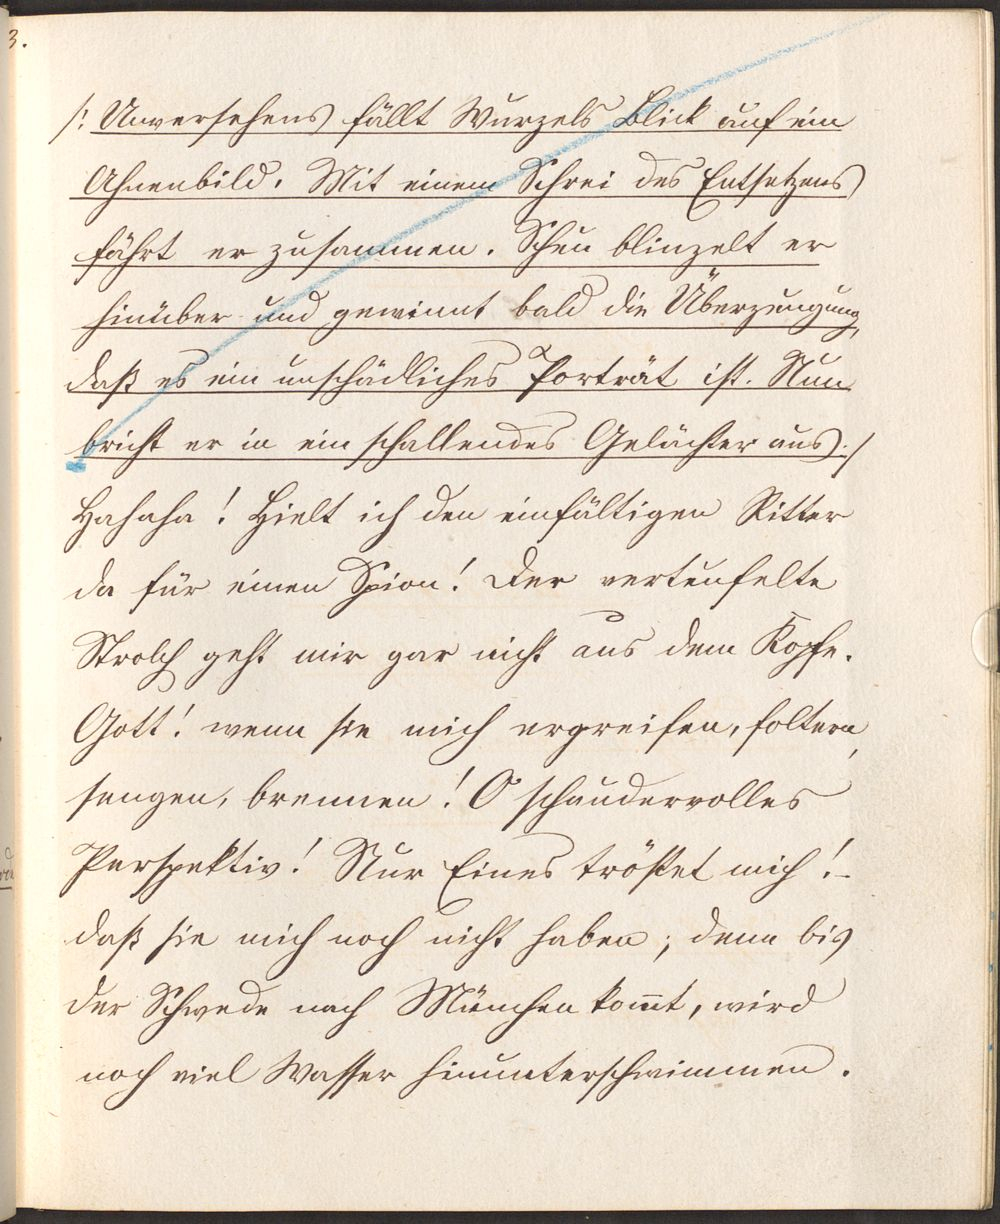 3.
/: Unversehens fällt Wurzels Blick auf ein
Ahnenbild. Mit einem Schrei des Entsetzens
fährt er zusammen. Scheu blinzelt er
hinüber und gewinnt bald die Überzeugung,
daß es ein unschädliches Porträt ist. Nun
bricht er in ein schallendes Gelächter aus. :/
Hahaha! Hielt ich den einfältigen Ritter
da für einen Spion! Der verteufelte
Strolch geht mir gar nicht aus dem Kopfe.
Gott! wenn sie mich ergreifen, foltern,
sengen, brennen! O schaudervolles
Perspektiv! Nur Eines tröstet mich! –
daß sie mich noch nicht haben; denn bis
der Schwede nach München kom̄t, wird
noch viel Wasser hinunterschwimmen.